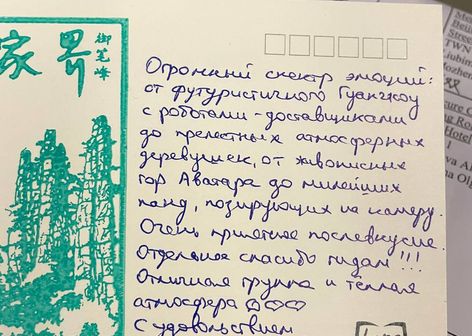 家界
御笔峰
Огромный спектр эмоций:
от футуристичного Гуанчжоу
с роботами-доставщиками
до прелестных атмосферных
деревушек, от живописных
гор Аватара до милейших
панд, позирующих на камеру.
Очень приятное послевкусие.
Отдельное спасибо гидам!!!
Отличная группа и тёплая
атмосфера ♡♡♡
С удовольствием